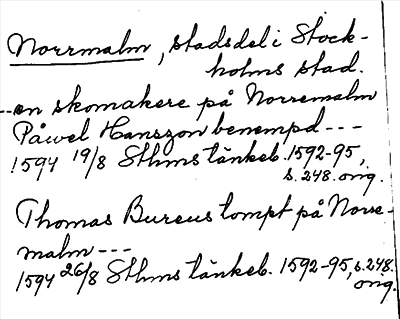 Norrmalm, stadsdel i Stock-
holms stad.
--en skomakere på Norremalm
Påwel Hansson benempd---
1594 19/8 Sthms tänkeb. 1592-95,
s. 248. orig.
Thomas Bureus tompt på Norre-
malm---
1594 26/8 Sthms tänkeb. 1592-95, s. 248.
orig.